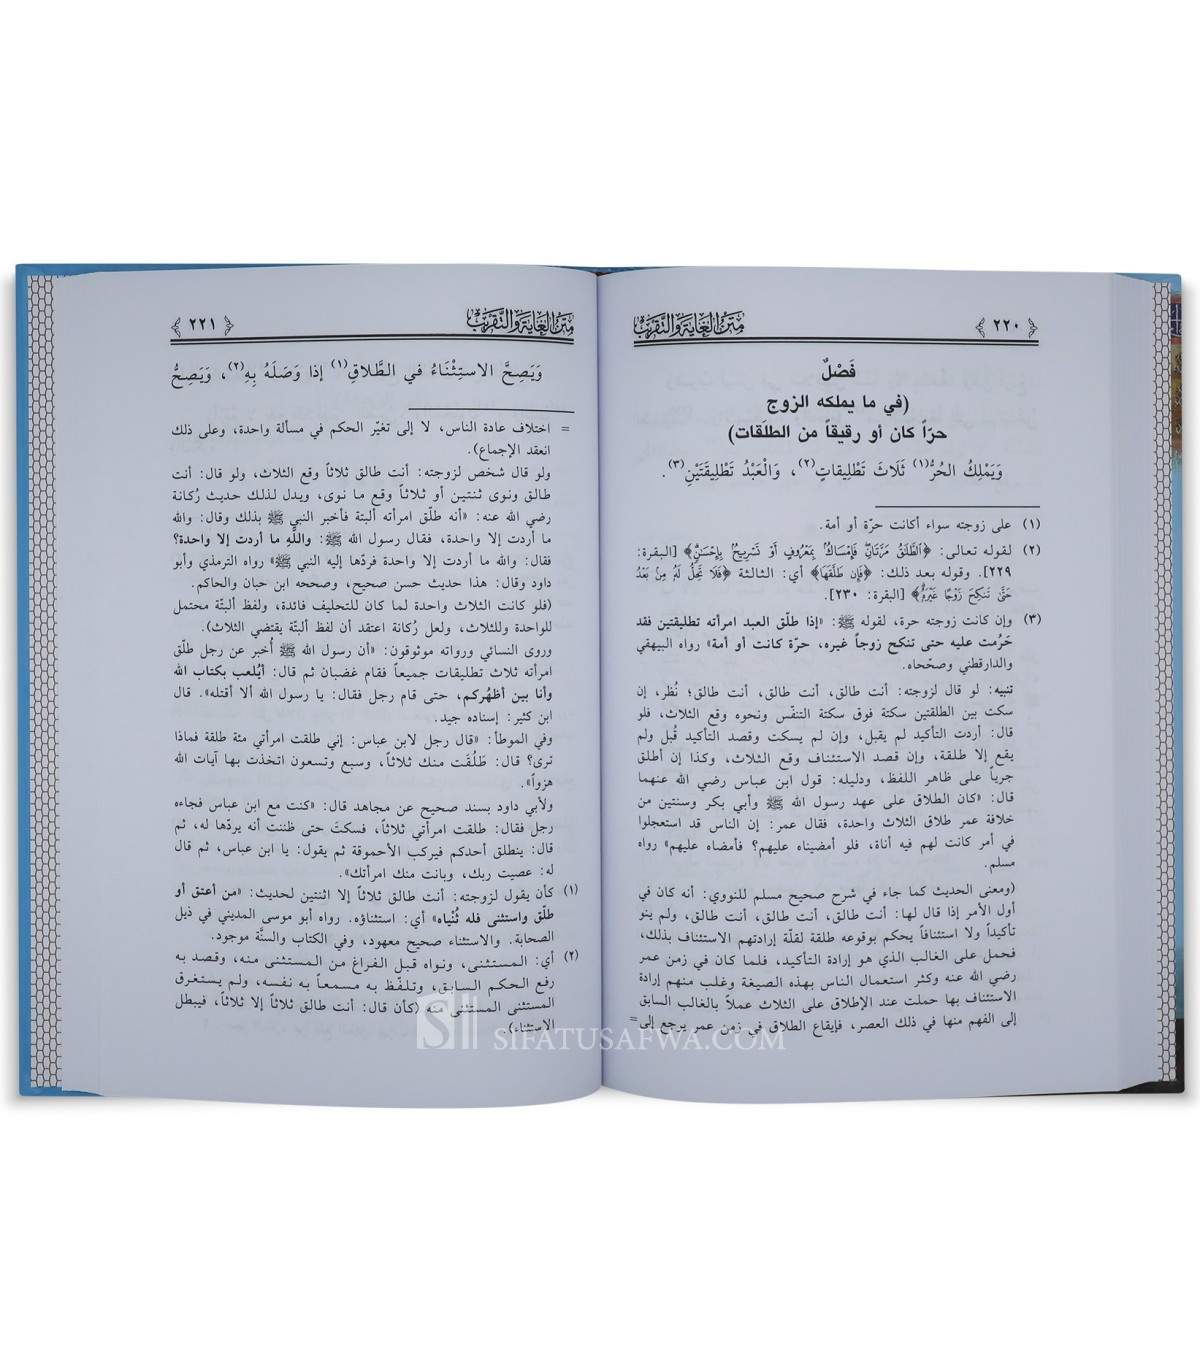 متن الغاية والتقريب
٢٢٠
فَصْلٌ
(في ما يملكه الزوج
حرّاً كان أو رقيقاً من الطلَقات)
وَيَمْلِكُ الحُرُّ(١) ثَلَاثَ تَطْلِيقاتٍ(٢)، وَالْعَبْدُ تَطْلِيقَتَيْنِ(٣).
(١) على زوجته سواء أكانت حرّة أو أمة.
(٢) لقوله تعالى: ﴿ٱلطَّلَٰقُ مَرَّتَانِۖ فَإِمْسَاكٌۢ بِمَعْرُوفٍ أَوْ تَسْرِيحٌۢ بِإِحْسَٰنٍۗ﴾ [البقرة:
٢٢٩]. وقوله بعد ذلك: ﴿فَإِن طَلَّقَهَا﴾ أي: الثالثة ﴿فَلَا تَحِلُّ لَهُۥ مِنۢ بَعْدُ
حَتَّىٰ تَنكِحَ زَوْجًا غَيْرَهُۥۗ﴾ [البقرة: ٢٣٠].
(٣) وإن كانت زوجته حرة، لقوله ﷺ: «إذا طلّق العبد امرأته تطليقتين فقد
حَرُمت عليه حتى تنكح زوجاً غيره، حرّة كانت أو أمة» رواه البيهقي
والدارقطني وصحّحاه.
تنبيه: لو قال لزوجته: أنت طالق، أنت طالق، أنت طالق؛ نُظر، إن
سكت بين الطلقتين سكتة فوق سكتة التنفّس ونحوه وقع الثلاث، فلو
قال: أردت التأكيد لم يقبل، وإن لم يسكت وقصد التأكيد قُبل ولم
يقع إلا طلقة، وإن قصد الاستئناف وقع الثلاث، وكذا إن أطلق
جرياً على ظاهر اللفظ، ودليله: قول ابن عباس رضي الله عنهما
قال: «كان الطلاق على عهد رسول الله ﷺ وأبي بكر وسنتين من
خلافة عمر طلاق الثلاث واحدة، فقال عمر: إن الناس قد استعجلوا
في أمر كانت لهم فيه أناة، فلو أمضيناه عليهم؟ فأمضاه عليهم» رواه
مسلم.
(ومعنى الحديث كما جاء في شرح صحيح مسلم للنووي: أنه كان في
أول الأمر إذا قال لها: أنت طالق، أنت طالق، أنت طالق، ولم ينو
تأكيداً ولا استئنافاً يحكم بوقوعه طلقة لقلّة إرادتهم الاستئناف بذلك،
فحمل على الغالب الذي هو إرادة التأكيد، فلما كان في زمن عمر
رضي الله عنه وكثر استعمال الناس بهذه الصيغة وغلب منهم إرادة
الاستئناف بها حملت عند الإطلاق على الثلاث عملاً بالغالب السابق
إلى الفهم منها في ذلك العصر، فإيقاع الطلاق في زمن عمر يرجع إلى =
متن الغاية والتقريب
٢٢١
وَيَصِحَّ الاستِثْنَاءُ في الطَّلاقِ(١) إذا وَصَلَهُ بِهِ(٢)، وَيَصِحُّ
= اختلاف عادة الناس، لا إلى تغيّر الحكم في مسألة واحدة، وعلى ذلك
انعقد الإجماع).
ولو قال شخص لزوجته: أنت طالق ثلاثاً وقع الثلاث، ولو قال: أنت
طالق ونوى ثنتين أو ثلاثاً وقع ما نوى، ويدل لذلك حديث رُكانة
رضي الله عنه: «أنه طلّق امرأته ألبتة فأخبر النبي ﷺ بذلك وقال: والله
ما أردت إلا واحدة، فقال رسول الله ﷺ: واللَّهِ ما أردت إلا واحدة؟
فقال: والله ما أردت إلا واحدة فردّها إليه النبي ﷺ» رواه الترمذي وأبو
داود وقال: هذا حديث حسن صحيح، وصححه ابن حبان والحاكم.
(فلو كانت الثلاث واحدة لما كان للتحليف فائدة، ولفظ ألبتّة محتمل
للواحدة وللثلاث، ولعل رُكانة اعتقد أن لفظ ألبتّة يقتضي الثلاث).
وروى النسائي ورواته موثوقون: «أن رسول الله ﷺ أُخبر عن رجل طلّق
امرأته ثلاث تطليقات جميعاً فقام غضبان ثم قال: أيُلعب بكتاب الله
وأنا بين أظهُركم، حتى قام رجل فقال: يا رسول الله ألا أقتله». قال
ابن كثير: إسناده جيد.
وفي الموطأ: «قال رجل لابن عباس: إني طلقت امرأتي مئة طلقة فماذا
ترى؟ قال: طَلُقَت منك ثلاثاً، وسبع وتسعون اتخذت بها آيات الله
هزواً».
ولأبي داود بسند صحيح عن مجاهد قال: «كنت مع ابن عباس فجاءه
رجل فقال: طلقت امرأتي ثلاثاً، فسكتَ حتى ظننت أنه يردّها له، ثم
قال: ينطلق أحدكم فيركب الأحموقة ثم يقول: يا ابن عباس، ثم قال
له: عصيت ربك، وبانت منك امرأتك».
(١) كأن يقول لزوجته: أنت طالق ثلاثاً إلا اثنتين لحديث: «من أعتق أو
طلّق واستثنى فله ثُنْياه» أي: استثناؤه. رواه أبو موسى المديني في ذيل
الصحابة. والاستثناء صحيح معهود، وفي الكتاب والسنَّة موجود.
(٢) أي: المستثنى، ونواه قبل الفراغ من المستثنى منه، وقصد به
رفع الحكم السابق، وتلفّظ به مسمعاً به نفسه، ولم يستغرق
المستثنى المستثنى منه (كأن قال: أنت طالق ثلاثاً إلا ثلاثاً، فيبطل
الاستثناء).
SIFATUSAFWA.COM